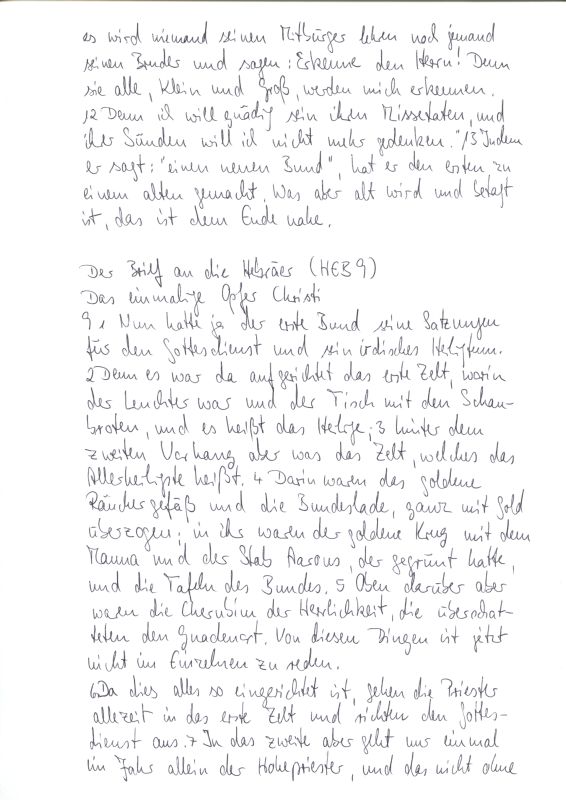 es wird niemand seinen Mitbürger lehren noch jemand
seinen Bruder und sagen: Erkenne den Herrn! Denn
sie alle, Klein und Groß, werden mich erkennen.
12 Denn ich will gnädig sein ihren Missetaten, und
ihrer Sünden will ich nicht mehr gedenken." 13 Indem
er sagt: "einen neuen Bund", hat er den ersten zu
einem alten gemacht. Was aber alt wird und betagt
ist, das ist dem Ende nahe.
Der Brief an die Hebräer (HEB 9)
Das einmalige Opfer Christi
9 1 Nun hatte ja der erste Bund seine Satzungen
für den Gottesdienst und sein irdisches Heiligtum.
2 Denn es war da aufgerichtet das erste Zelt, worin
der Leuchter war und der Tisch mit den Schau-
broten, und es heißt das Heilige; 3 hinter dem
zweiten Vorhang aber was das Zelt, welches das
Allerheiligste heißt. 4 Darin waren das goldene
Räuchergefäß und die Bundeslade, ganz mit Gold
überzogen; in ihr waren der goldene Krug mit dem
Manna und der Stab Aarons, der gegrünt hatte,
und die Tafeln des Bundes. 5 Oben darüber aber
waren die Cherubim der Herrlichkeit, die überschat-
teten den Gnadenort. Von diesen Dingen ist jetzt
nicht im Einzelnen zu reden.
6 Da dies alles so eingerichtet ist, gehen die Priester
allezeit in das erste Zelt und richten den Gottes-
dienst aus. 7 In das zweite aber geht nur einmal
im Jahr allein der Hohepriester, und das nicht ohne